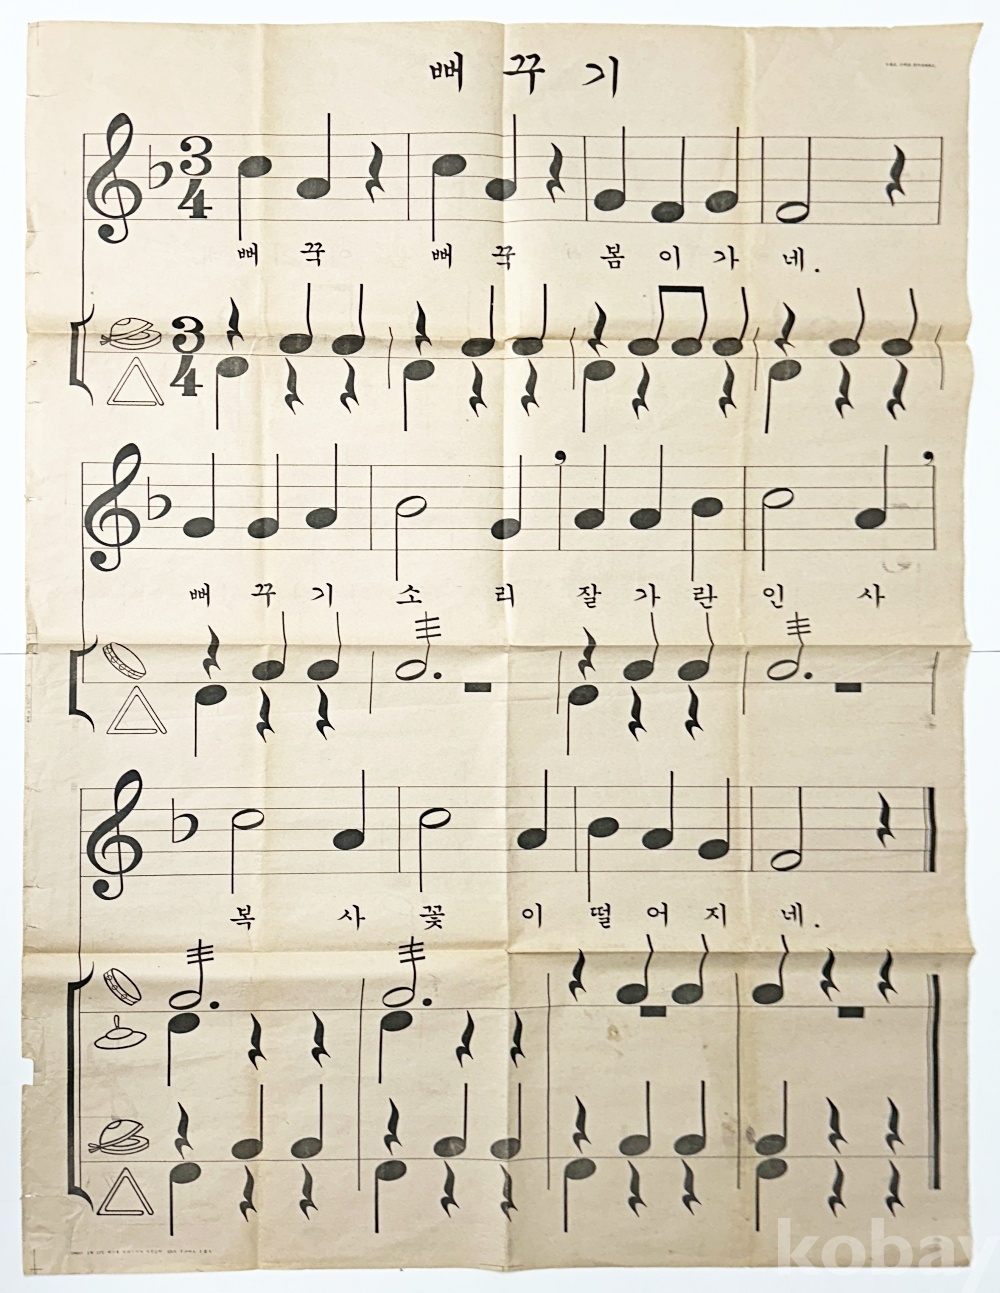 뻐꾸기
3
4
뻐꾹 뻐꾹 봄이가 네.
3
4
뻐꾸기 소리 잘가란 인사
복사꽃이 떨어지 네.
kobay